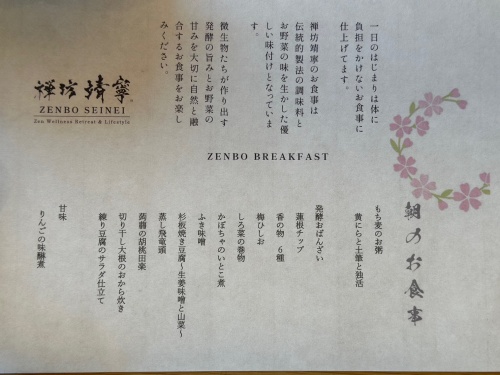 一日のはじまりは体に
負担をかけないお食事に
仕上げてます。
禅坊靖寧のお食事は
伝統的製法の調味料と
お野菜の味を生かした優
しい味付けとなっていま
す。
微生物たちが作り出す
発酵の旨みとお野菜の
甘みを大切に自然と融
合するお食事をお楽し
みください。
禅坊 靖寧
ZENBO SEINEI
Zen Wellness Retreat & Lifestyle
ZENBO BREAKFAST
朝のお食事
もち麦のお粥
黄にらと土筆と独活
発酵おばんざい
蓮根チップ
香の物 6種
梅ひしお
しろ菜の巻物
かぼちゃのいとこ煮
ふき味噌
杉板焼き豆腐~生姜味噌と山菜~
蒸し飛竜頭
蒟蒻の胡桃田楽
切り干し大根のおから炊き
練り豆腐のサラダ仕立て
甘味
りんごの味醂煮